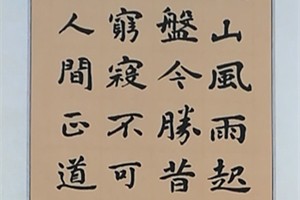 山風雨起
盤今勝昔
窮寇不可
人間正道